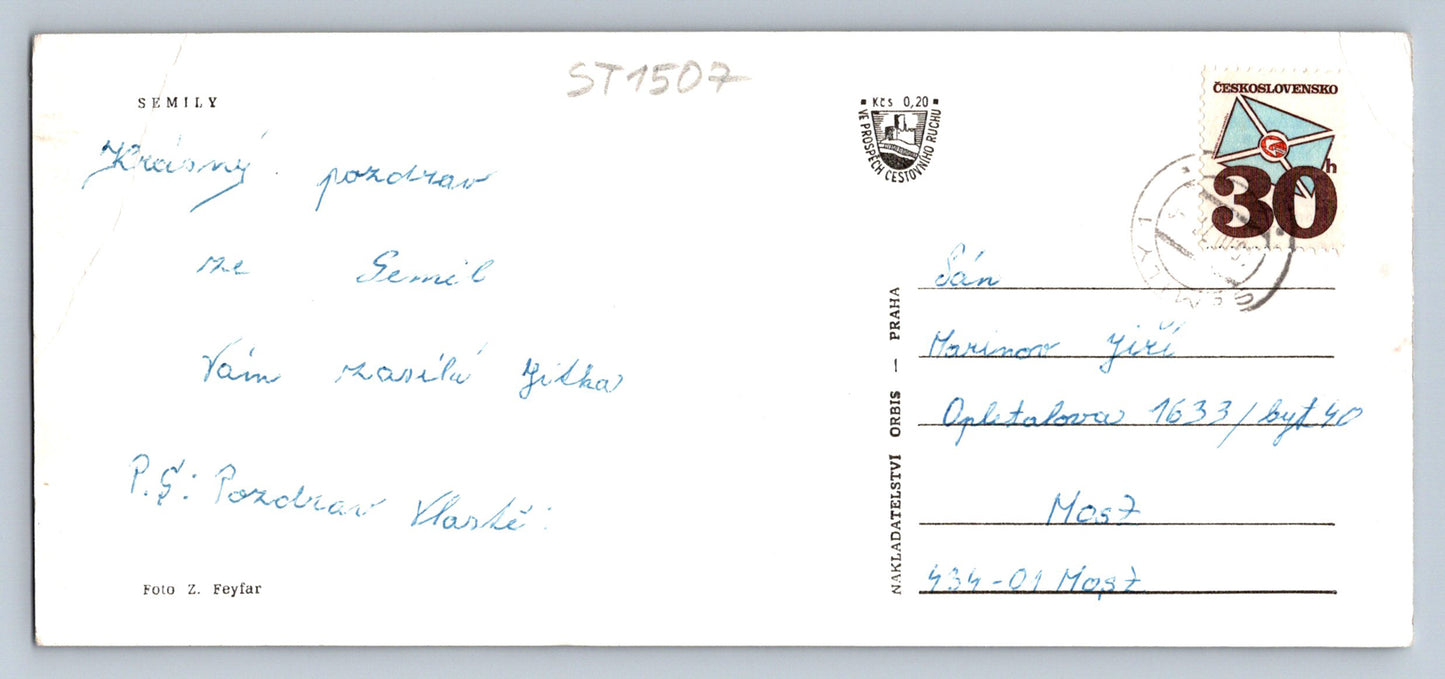 ST1507
SEMILY
Krásný pozdrav
ze Semil
Vám zasílá Jitka
P.S: Pozdrav Vlastě:
Foto Z. Feyfar
Kčs 0,20
VE PROSPĚCH CESTOVNÍHO RUCHU
NAKLADATELSTVÍ ORBIS — PRAHA
ČESKOSLOVENSKO
30h
SEMILY 1
Marinov Jiří
Opletalova 1633/byt 40
Most
434-01 Most